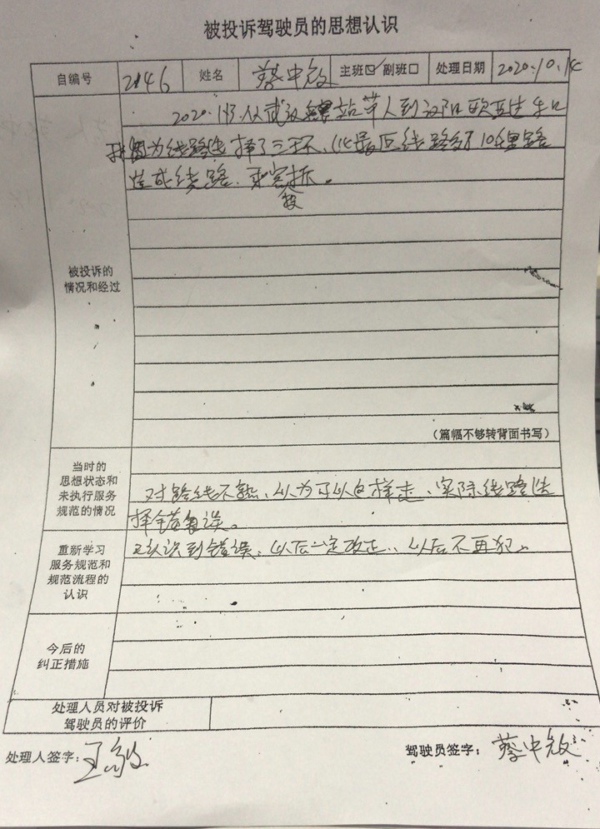 被投诉驾驶员的思想认识
自编号 2146 姓名 蔡中敏 主班☑ 副班口 处理日期 2020.10.14
2020. 从武汉站带人到汉阳欧亚达
我因为线路选择了三环、比最近线路多了10公里路
造成绕路、乘客投
诉。
被投诉的
情况和经过
(篇幅不够转背面书写)
当时的
思想状态和
未执行服务
规范的情况
对路线不熟、以为可以这样走、实际线路选
择错误。
重新学习
服务规范和
规范流程的
认识
已认识到错误、以后一定改正、以后不再犯。
今后的
纠正措施
处理人员对被投诉
驾驶员的评价
处理人签字: 王敏
驾驶员签字: 蔡中敏